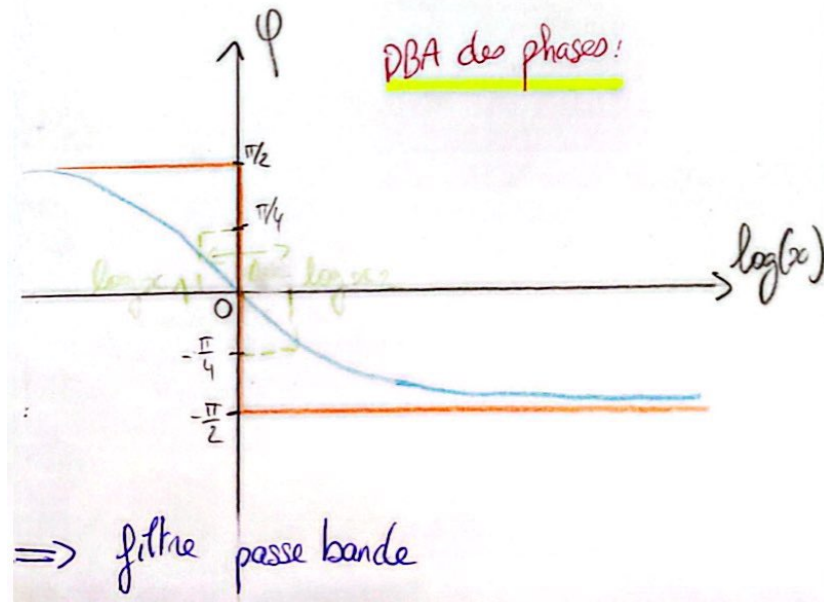 φ
DBA des phases:
π/2
π/4
log(x)
log x1
log x2
0
-π/4
-π/2
:
=> filtre passe bande